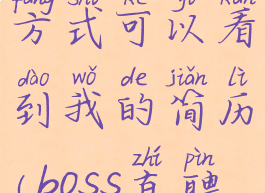 fāng shì kě yǐ kàn
方式可以看
dào wǒ de jiǎn lì
到我的简历
zhí pìn
(boss直聘